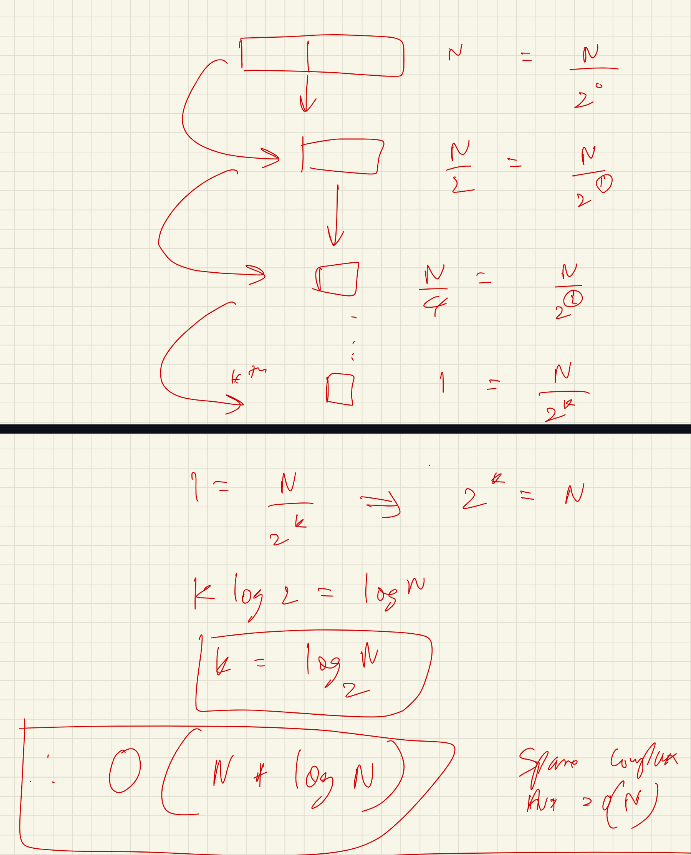 N = N/2^0
N/2 = N/2^1
N/4 = N/2^2
kth 1 = N/2^k
1 = N/2^k ⇒ 2^k = N
k log 2 = log N
k = log_2 N
∴ O(N * log N)
Space Complex
Aux = O(N)